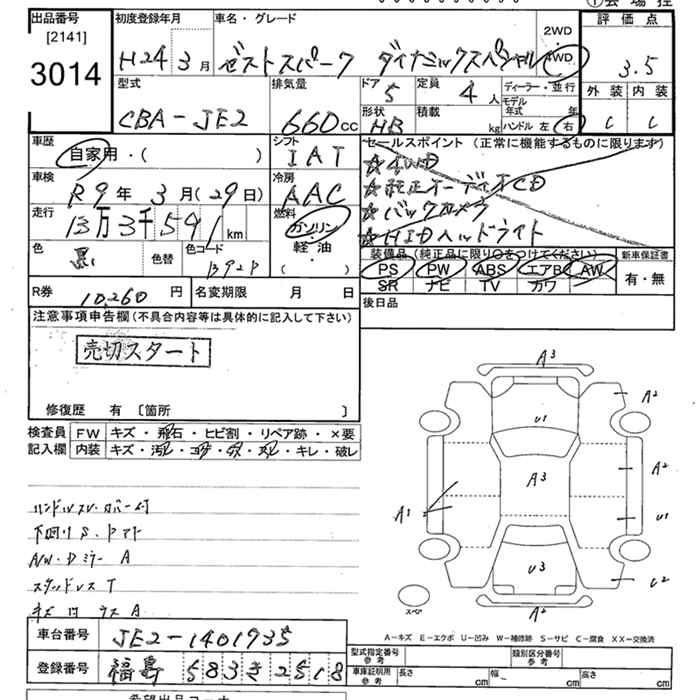 ①会場控
出品番号
[2141]
3014
初度登録年月
H24 3月
車名・グレード
ゼストスパーク ダイナミックスペシャル
2WD
4WD
評価点
3.5
外装 内装
C C
型式
CBA-JE2
排気量
660cc
ドア
5
定員
4人
形状
HB
積載
kg
ディーラー・並行
モデル年式 年
ハンドル 左 右
車歴
自家用・( )
シフト
IAT
セールスポイント (正常に機能するものに限ります)
☆4WD
☆純正オーディオCD
☆バックカメラ
☆HIDヘッドライト
車検
R9年 3月(29日)
冷房
AAC
走行
13万3千591km
燃料
ガソリン
軽油
( )
色
黒
色替
色コード
B92P
装備品 (純正品に限り○をつけてください)
PS PW ABS エアB AW
SR ナビ TV カワ
新車保証書
有・無
R券
10,260円
名変期限 月 日
後日品
注意事項申告欄(不具合内容等は具体的に記入して下さい)
売切スタート
修復歴 有 〔箇所 〕
検査員記入欄
FW キズ・飛石・ヒビ割・リペア跡・×要
内装 キズ・汚レ・コゲ・穴・スレ・キレ・破レ
ハンドルスレ・カバー付
下回りS・トマト
A/W・DミラーA
スタッドレスT
A3
U1
A2
A3
A2
A1
U1
U3
U2
A2
スペア
A-キズ E-エクボ U-凹み W-補修跡 S-サビ C-腐食 XX-交換済
車台番号
JE2-1401935
登録番号
福島 583き2518
型式指定番号
参考
類別区分番号
参考
車庫証明用
参考
長さ cm
幅 cm
高さ cm
希望出品コーナー